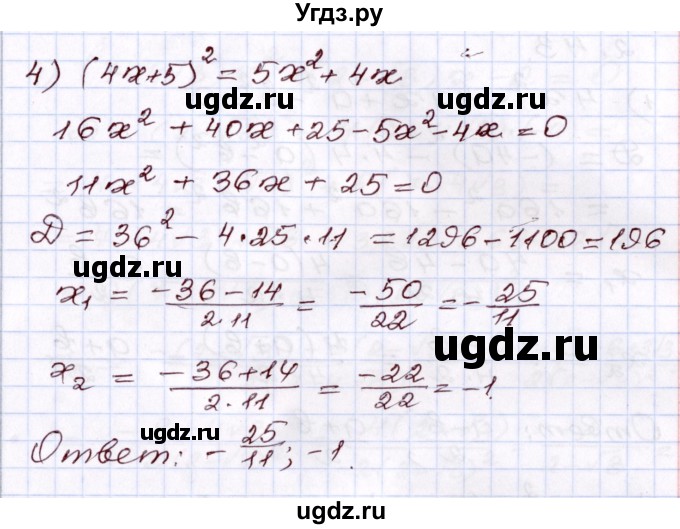 Угдз.ру
4) (4x+5)² = 5x² + 4x
ugdz.ru ugdz.ru
16x² + 40x + 25 - 5x² - 4x = 0
11x² + 36x + 25 = 0
Д = 36² - 4·25·11 = 1296 - 1100 = 196
ugdz.ru ugdz.ru
x₁ = (-36-14)/(2·11) = -50/22 = -25/11
ugdz.ru
x₂ = (-36+14)/(2·11) = -22/22 = -1.
ugdz.ru
Ответ: -25/11; -1.
ugdz.ru